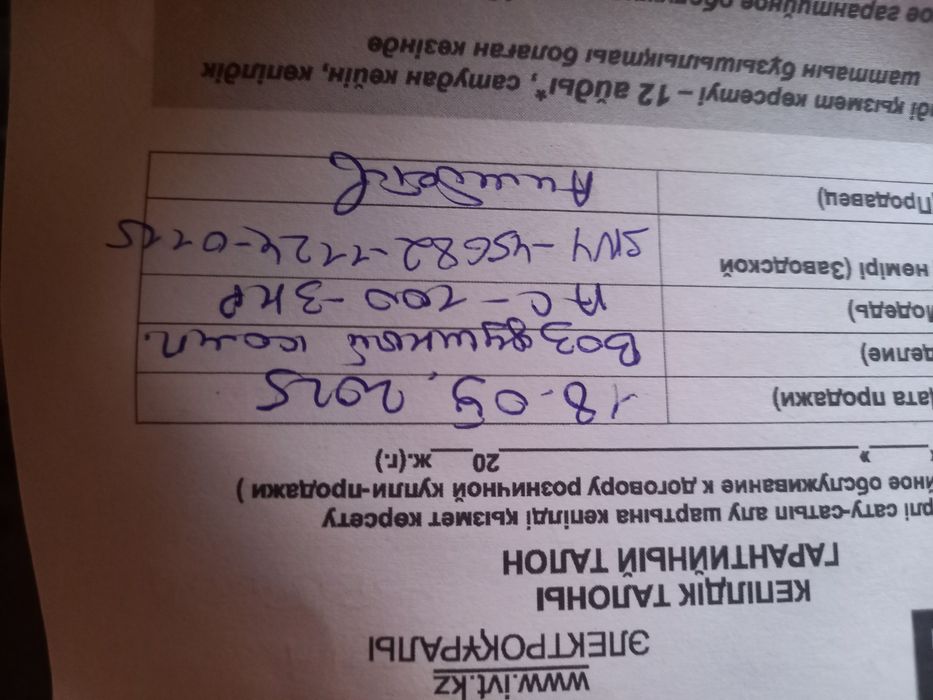 www.ivt.kz
ЭЛЕКТРОҚҰРАЛЫ
КЕПІЛДІК ТАЛОНЫ
ГАРАНТИЙНЫЙ ТАЛОН
сату-сатып алу шартына кепілді қызмет көрсету
обслуживание к договору розничной купли-продажи )
20___ж.(г.)
продажи) 18.05.2025
Воздушный комп.
АС-200-3КР
нөмірі (Заводской SN4-45682-1124-0115
Продавец)
қызмет көрсетуі – 12 айды*, сатудан кейін, кепілдік
шаттатын бұзышылықтаы болаған көзінде
гарантийное